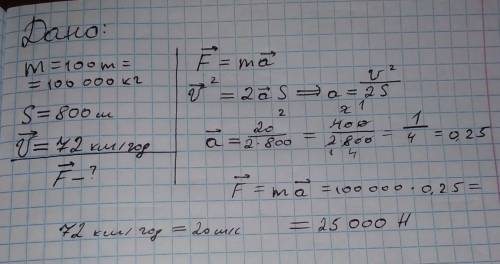 Дано:
m = 100 т =
= 100 000 кг
S = 800 м
v⃗ = 72 км/год
F⃗ - ?
F⃗ = ma⃗
v⃗² = 2a⃗S ⟹ a = v²/2S
a⃗ = 20²/2·800 = 400/2·800 = 1/4 = 0,25
F⃗ = ma⃗ = 100 000 · 0,25 =
72 км/год = 20 м/с = 25 000 Н